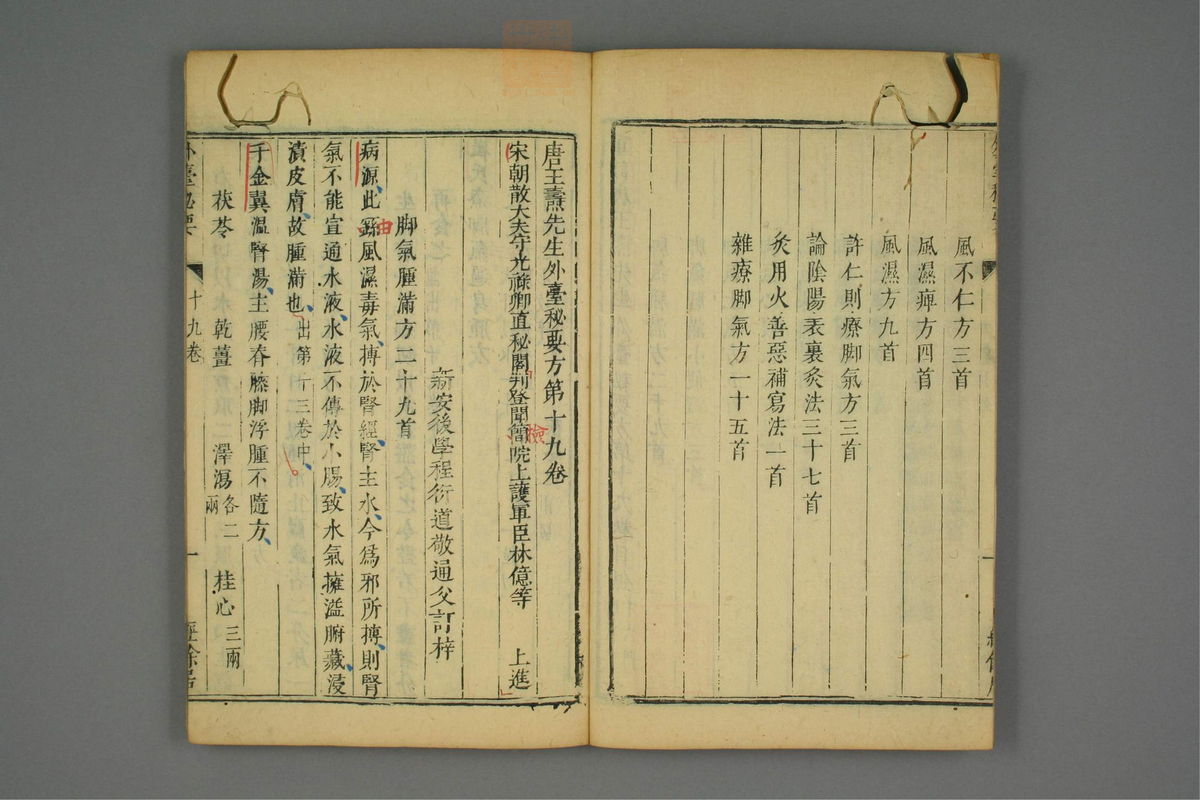 風不仁方三首
風濕痺方四首
風濕方九首
許仁則療脚氣方三首
論陰陽表裏灸法三十七首
灸用火善惡補寫法一首
雜療脚氣方一十五首
唐王燾先生外臺秘要方第十九卷
宋朝散大夫守光祿卿直秘閣判登聞簡院上護軍臣林億等　上進
檢
新安後學程衍道敬通父訂梓
脚氣腫滿方二十九首
病源此繇風濕毒氣搏於腎經腎主水今爲邪所搏則腎
由
氣不能宣通水液水液不傳於小腸致水氣擁溢腑藏浸
漬皮膚故腫滿也出第十三卷中
千金翼温腎湯主腰脊膝脚浮腫不隨方
茯苓　乾薑　澤瀉各二兩　桂心三兩
外臺秘要　十九卷　一　經餘居